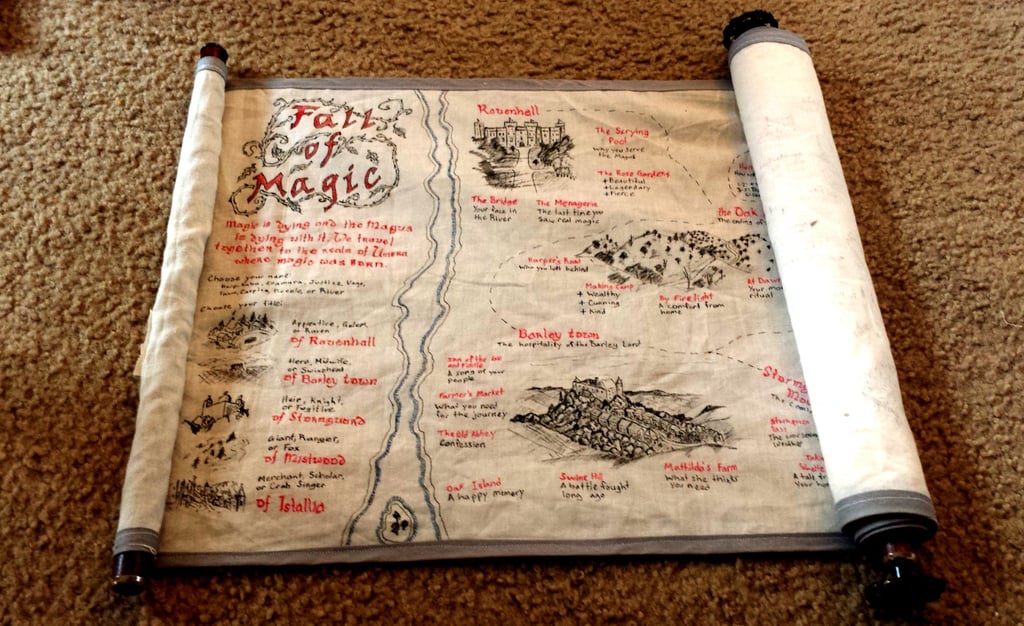 Fall
of
Magic
Magic is dying and the Magus
is dying with it. We travel
together to the realm of Umbra
where magic was born.
Choose your name:
Justice, Vega,
or River
Choose your title:
Apprentice, Golem,
or Raven
of Ravenhall
Hero, Midwife,
or Swineherd
of Barley town
Heir, Knight,
or Fugitive
of Stormguard
Giant, Ranger,
or Fox
of Mistwood
Merchant, Scholar,
or Crab Singer
of Istallia
Ravenhall
The Scrying
Pool
Why you serve
the Magus
The Rose Gardens
+Beautiful
+Legendary
+Fierce
The Bridge
Your face in
the River
The Menagerie
The last time you
saw real magic
the Oak
The ending of
Harper's Road
Who you left behind
Making Camp
+ Wealthy
+ Cunning
+ Kind
By Firelight
A comfort from
home
At Daw
Your mo
ritual
Barley town
The hospitality of the Barley Lord
Inn of the
and Fiddle
A song of your
people
Farmer's Market
What you need
for the journey
The Old Abbey
Confession
Oak Island
A happy memory
Swine Hill
A battle fought
long ago
Mathilda's Farm
What she thinks
you need
Storm
The
A t